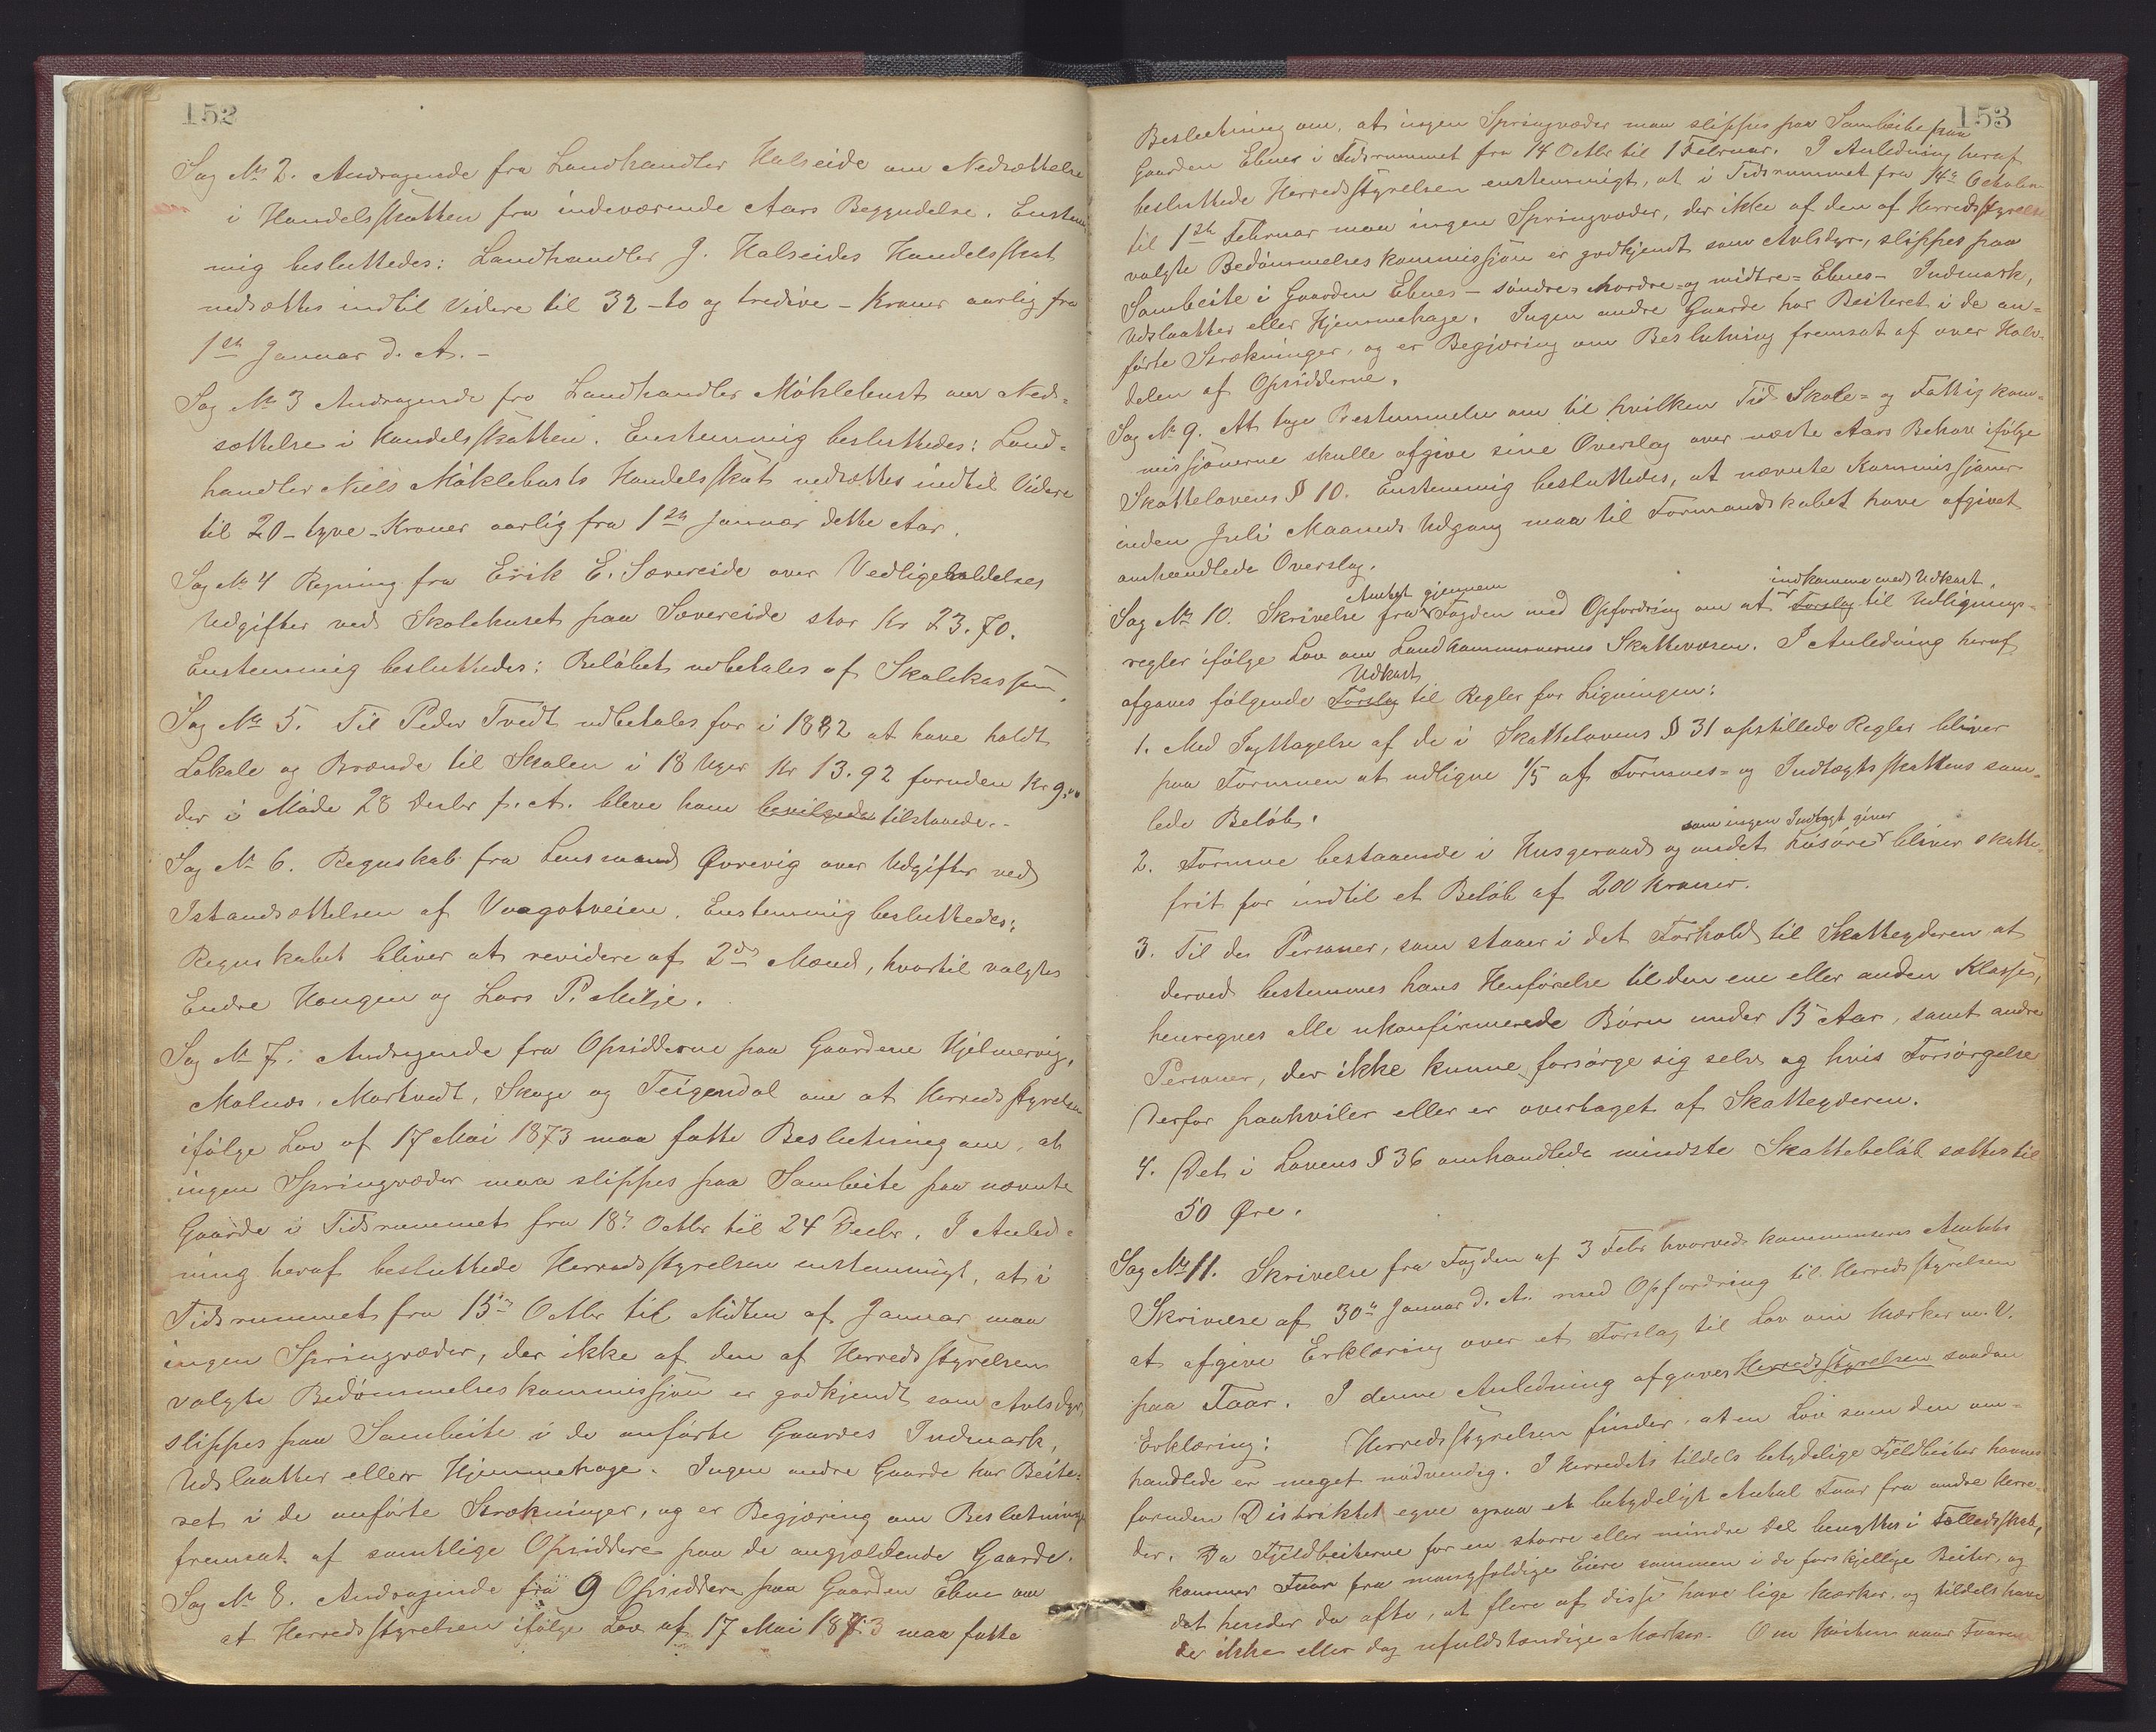 152
Sag No 2. Andragende fra Landhandler Halseide om Nedsættelse
i Handelsskatten fra indeværende Aars Begyndelse. Enstem
mig besluttedes: Landhandler J. Halseides Handelsskat
nedsættes indtil Videre til 32 - to og tredive - Kroner aarlig fra
1ste Januar d. A. -
Sag No 3 Andragende fra Landhandler Möklebust om Ned-
sættelse i Handelsskatten. Enstemmig besluttedes: Land-
handler Niels Möklebusts Handelsskat nedsættes indtil Videre
til 20 - tyve - Kroner aarlig fra 1ste Januar dette Aar.
Sag No 4 Regning fra Erik E. Sævereide over Vedligeholdelses
Udgifter ved Skolehuset paa Sævereide stor Kr 23.70.
Enstemmig besluttedes: Belöbet udbetales af Skolekassen.
Sag No 5. Til Peder Tvedt udbetales for i 1882 at have holdt
Lokale og Brænde til Skolen i 18 Uger Kr 13.92 foruden Kr 9,00
der i Möde 28 Decbr f. A. bleve ham bevilgede tilstaaede. -
Sag No 6. Regnskab fra Lensmand Øvrevig over Udgifter ved
Istandsættelsen af Vaagotveien. Enstemmig besluttedes:
Regnskabet bliver at revidere af 2de Mænd, hvortil valgtes
Endre Haugen og Lars P. Milje.
Sag No 7. Andragende fra Opsidderne paa Gaardene Hjelmervig,
Malnes, Markvedt, Skage og Teigendal om at Herredsstyrelsen
ifölge Lov af 17 Mai 1873 maa fatte Beslutning om, at
ingen Springvæder maa slippes paa Sambeite paa nævnte
Gaarde i Tidsrummet fra 18de Octbr til 24 Decbr. I Anled-
ning heraf besluttede Herredsstyrelsen enstemmigt, at i
Tidsrummet fra 15de Octbr til Midten af Januar maa
ingen Springvæder, der ikke af den af Herredsstyrelsen
valgte Bedömmelseskommissjon er godkjendt som Avlsdyr,
slippes paa Sambeite i de anförte Gaardes Indmark,
Udslaatter eller Hjemmehage. Ingen andre Gaarde har Beite-
ret i de anförte Strækninger, og er Begjæring om Beslutning
fremsat af samtlige Opsiddere paa de angjældende Gaarde.
Sag No 8. Andragende fra 9 Opsiddere paa Gaarden Ebne om
at Herredsstyrelsen ifölge Lov af 17 Mai 1873 maa fatte
153
Beslutning om, at ingen Springvæder maa slippes paa Sambeite paa
Gaarden Ebnes i Tidsrummet fra 14 Octbr til 1 Februar. I Anledning heraf
besluttede Herredsstyrelsen enstemmigt, at i Tidsrummet fra 14de October
til 1ste Februar maa ingen Springvæder, der ikke af den af Herredsstyrelsen
valgte Bedömmelseskommissjon er godkjendt som Avlsdyr, slippes paa
Sambeite i Gaarden Ebnes - söndre- nordre- og midtre- Ebnes - Indmark,
Udslaatter eller Hjemmehage. Ingen andre Gaarde har Beiteret i de an-
förte Strækninger, og er Begjæring om Beslutning fremsat af over Halv-
delen af Opsidderne.
Sag No 9. At tage Bestemmelse om til hvilken Tid Skole- og Fattigkom-
missjonerne skulle afgive sine Overslag over næste Aars Behov ifölge
Skattelovens § 10. Enstemmig besluttedes, at nævnte Kommissjoner
inden Juli Maaneds Udgang maa til Formandskabet have afgivet
omhandlede Overslag.
Amtet gjennem indkomme med Udkast
Sag No 10. Skrivelse fra Fogden med Opfordring om at Forslag til Udlignings-
regler ifölge Lov om Landkommunernes Skattevæsen. I Anledning heraf
Udkast
afgaves fölgende Forslag til Regler for Ligningen:
1. Med Iagttagelse af de i Skattelovens § 31 opstillede Regler bliver
paa Formuen at udligne 1/5 af Formues- og Indtægtsskattens sam-
lede Belöb.
som ingen Indtægt giver
2. Formue bestaaende i Husgeraad og andet Lösöre bliver skatte-
frit for indtil et Belöb af 200 Kroner.
3. Til de Personer, som staar i det Forhold til Skatteyderen at
derved bestemmes hans Henförelse til den ene eller anden Klasse,
henregnes alle ukonfirmerede Börn under 15 Aar, samt andre
Personer, der ikke kunne forsörge sig selv og hvis Forsörgelse
derfor paahviler eller er overtaget af Skatteyderen.
4. Det i Lovens § 36 omhandlede mindste Skattebelöb sættes til
50 Øre.
Sag No 11. Skrivelse fra Fogden af 3 Febr hvorved kommuniseres Amtets
Skrivelse af 30te Januar d. A. med Opfordring til Herredsstyrelsen
at afgive Erklæring over et Forslag til Lov om Mærker m. V.
paa Faar. I denne Anledning afgaves Herredsstyrelsen saadan
Erklæring: Herredsstyrelsen finder, at en Lov som den om-
handlede er meget nödvendig. I Herredets tildels betydelige Fjeldbeiter havnes
foruden Distriktets egne ogsaa et betydeligt Antal Faar fra andre Herre-
der. Da Fjeldbeiterne for en större eller mindre Del benyttes i Fælledsskab,
kommer Faar fra mangfoldige Eiere sammen i de forskjellige Beiter, og
det hender da ofte, at flere af disse have lige Mærker, og tildels have
de ikke eller dog ufuldstændige Mærker. Om Hösten naar Faarene